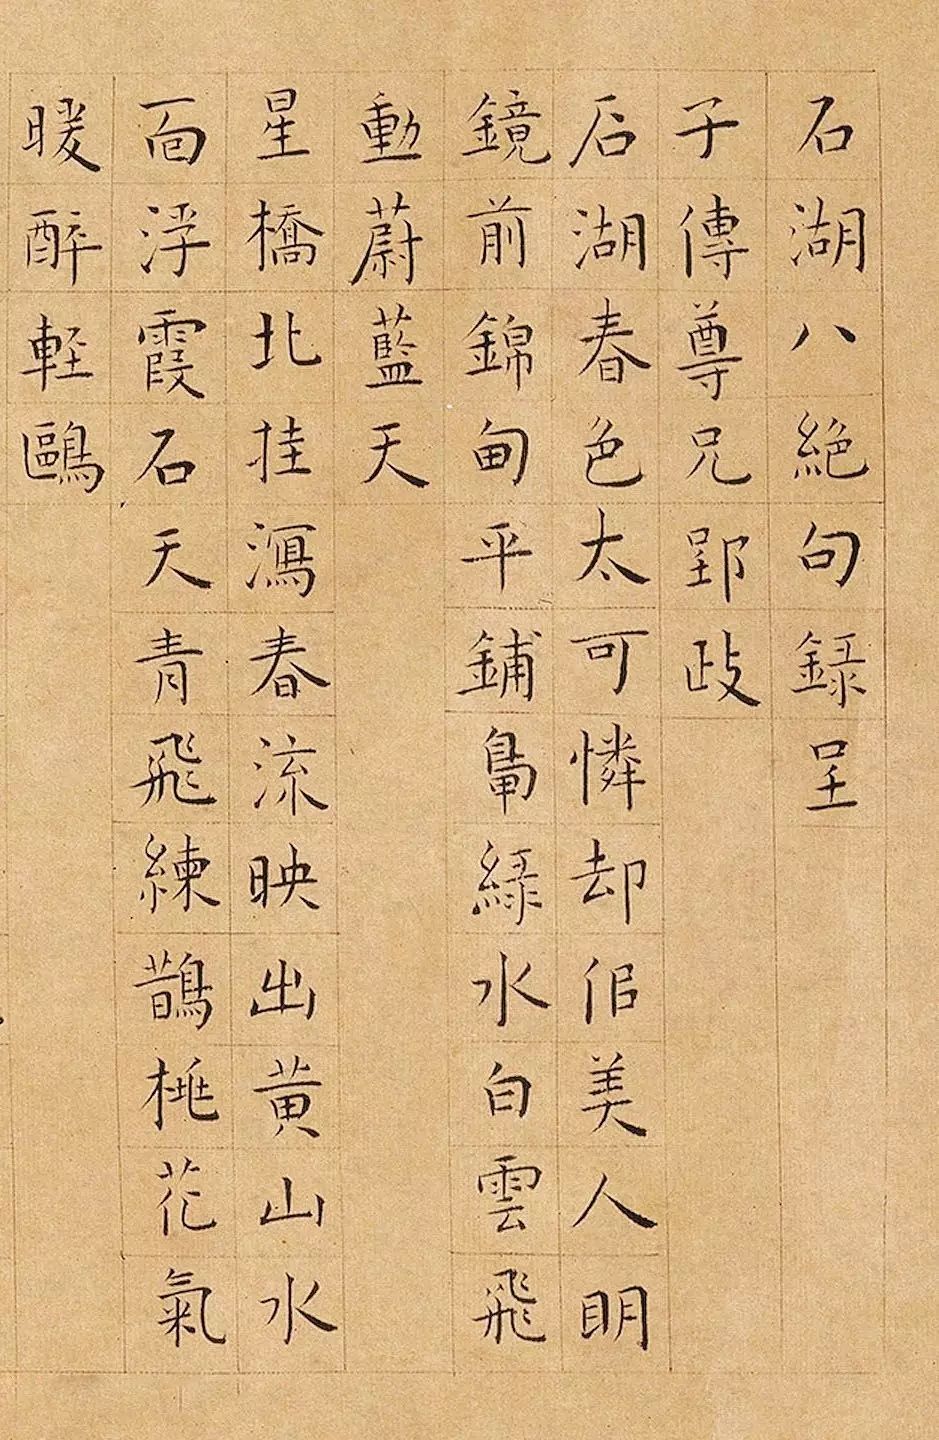 石湖八絶句録呈
子傳尊兄郢政
石湖春色太可憐却佀美人明
鏡前錦甸平鋪鳧綠水白雲飛
動蔚藍天
星橋北挂瀉春流映出黄山水
面浮霞石天青飛練鵲桃花氣
暖醉輕鷗